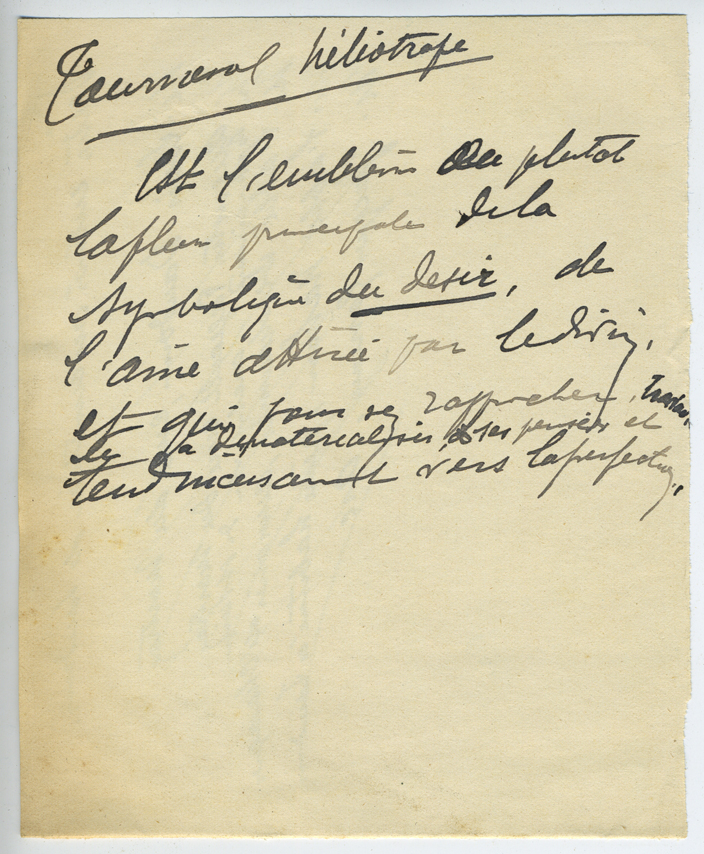 Tournesol héliotrope
Est l'emblème ou plutôt
la fleur principale de la
symbolique du desir, de
l'âme attirée par le divin,
et qui pour s'en rapprocher,
la dématérialiser ses pensées et
tend incessament vers la perfection,